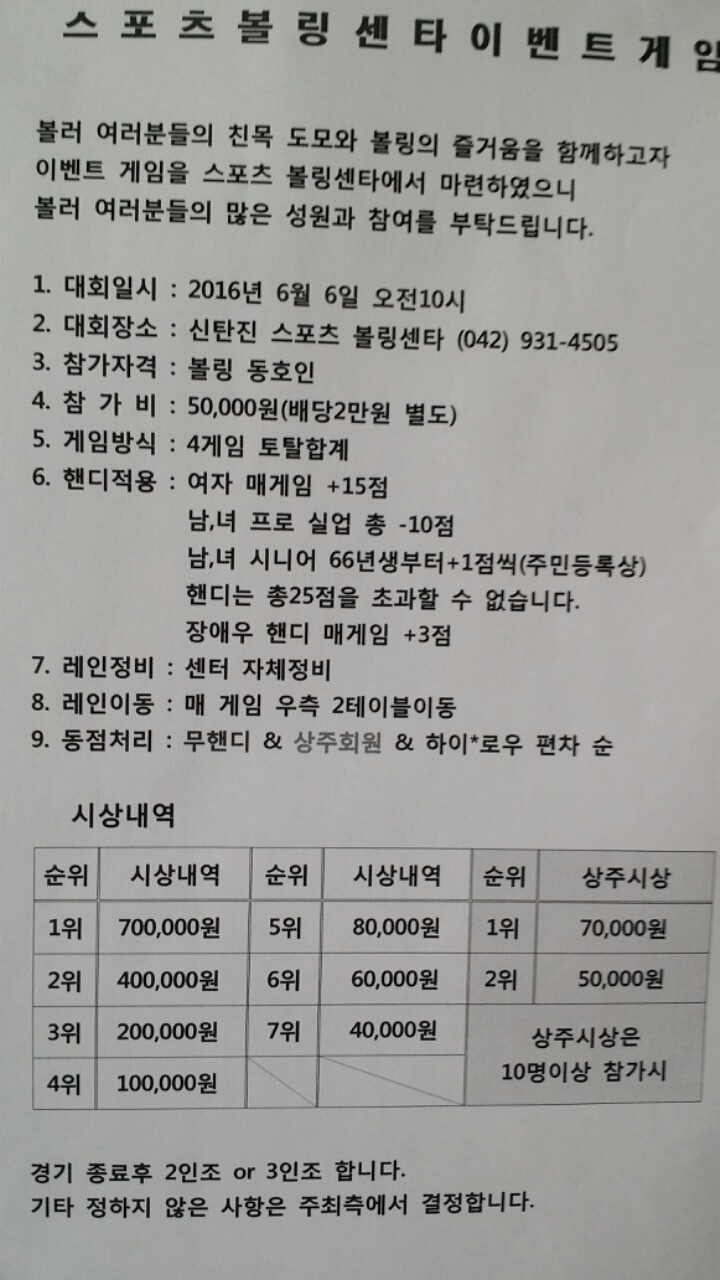 스포츠볼링센타이벤트게임
볼러 여러분들의 친목 도모와 볼링의 즐거움을 함께하고자
이벤트 게임을 스포츠 볼링센타에서 마련하였으니
볼러 여러분들의 많은 성원과 참여를 부탁드립니다.
1. 대회일시 : 2016년 6월 6일 오전10시
2. 대회장소 : 신탄진 스포츠 볼링센타 (042) 931-4505
3. 참가자격 : 볼링 동호인
4. 참 가 비 : 50,000원(배당2만원 별도)
5. 게임방식 : 4게임 토탈합계
6. 핸디적용 : 여자 매게임 +15점
남,녀 프로 실업 총 -10점
남,녀 시니어 66년생부터+1점씩(주민등록상)
핸디는 총25점을 초과할 수 없습니다.
장애우 핸디 매게임 +3점
7. 레인정비 : 센터 자체정비
8. 레인이동 : 매 게임 우측 2테이블이동
9. 동점처리 : 무핸디 & 상주회원 & 하이*로우 편차 순
시상내역
순위 시상내역 순위 시상내역 순위 상주시상
1위 700,000원 5위 80,000원 1위 70,000원
2위 400,000원 6위 60,000원 2위 50,000원
3위 200,000원 7위 40,000원 상주시상은
4위 100,000원 10명이상 참가시
경기 종료후 2인조 or 3인조 합니다.
기타 정하지 않은 사항은 주최측에서 결정합니다.